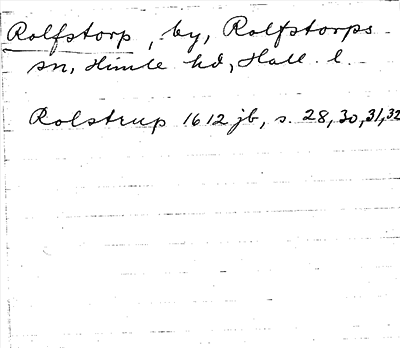 Rolfstorp, by, Rolfstorps
sn, Himle hd, Hall. l.
Rolstrup 1612 jb, s. 28, 30, 31, 32